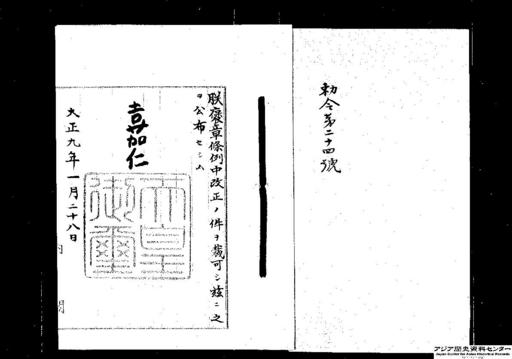 勅令第二十四號
朕褒章條例中改正ノ件ヲ裁可シ玆ニ之
ヲ公布セシム
嘉仁
天皇御璽
大正九年一月二十八日
内
閣
アジア歴史資料センター
Japan Center for Asian Historical Records